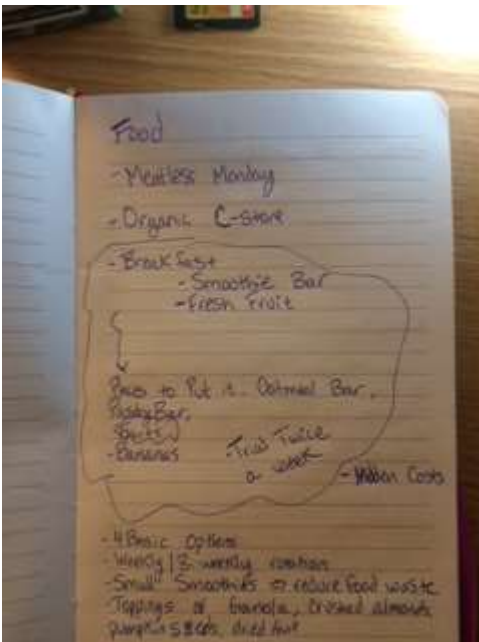 Food
- Meatless Monday
- Organic C-Store
- Breakfast
- Smoothie Bar
- Fresh Fruit
to Put it. Oatmeal Bar,
Bar,
- Bananas
- Trial Twice
a week
- Hidden Costs
- 4 Basic Options
- Weekly / 3 weekly rotation
- Small Smoothies to reduce food waste
- Toppings of Granola, Crushed almonds
pumpkin seeds, dried fruit